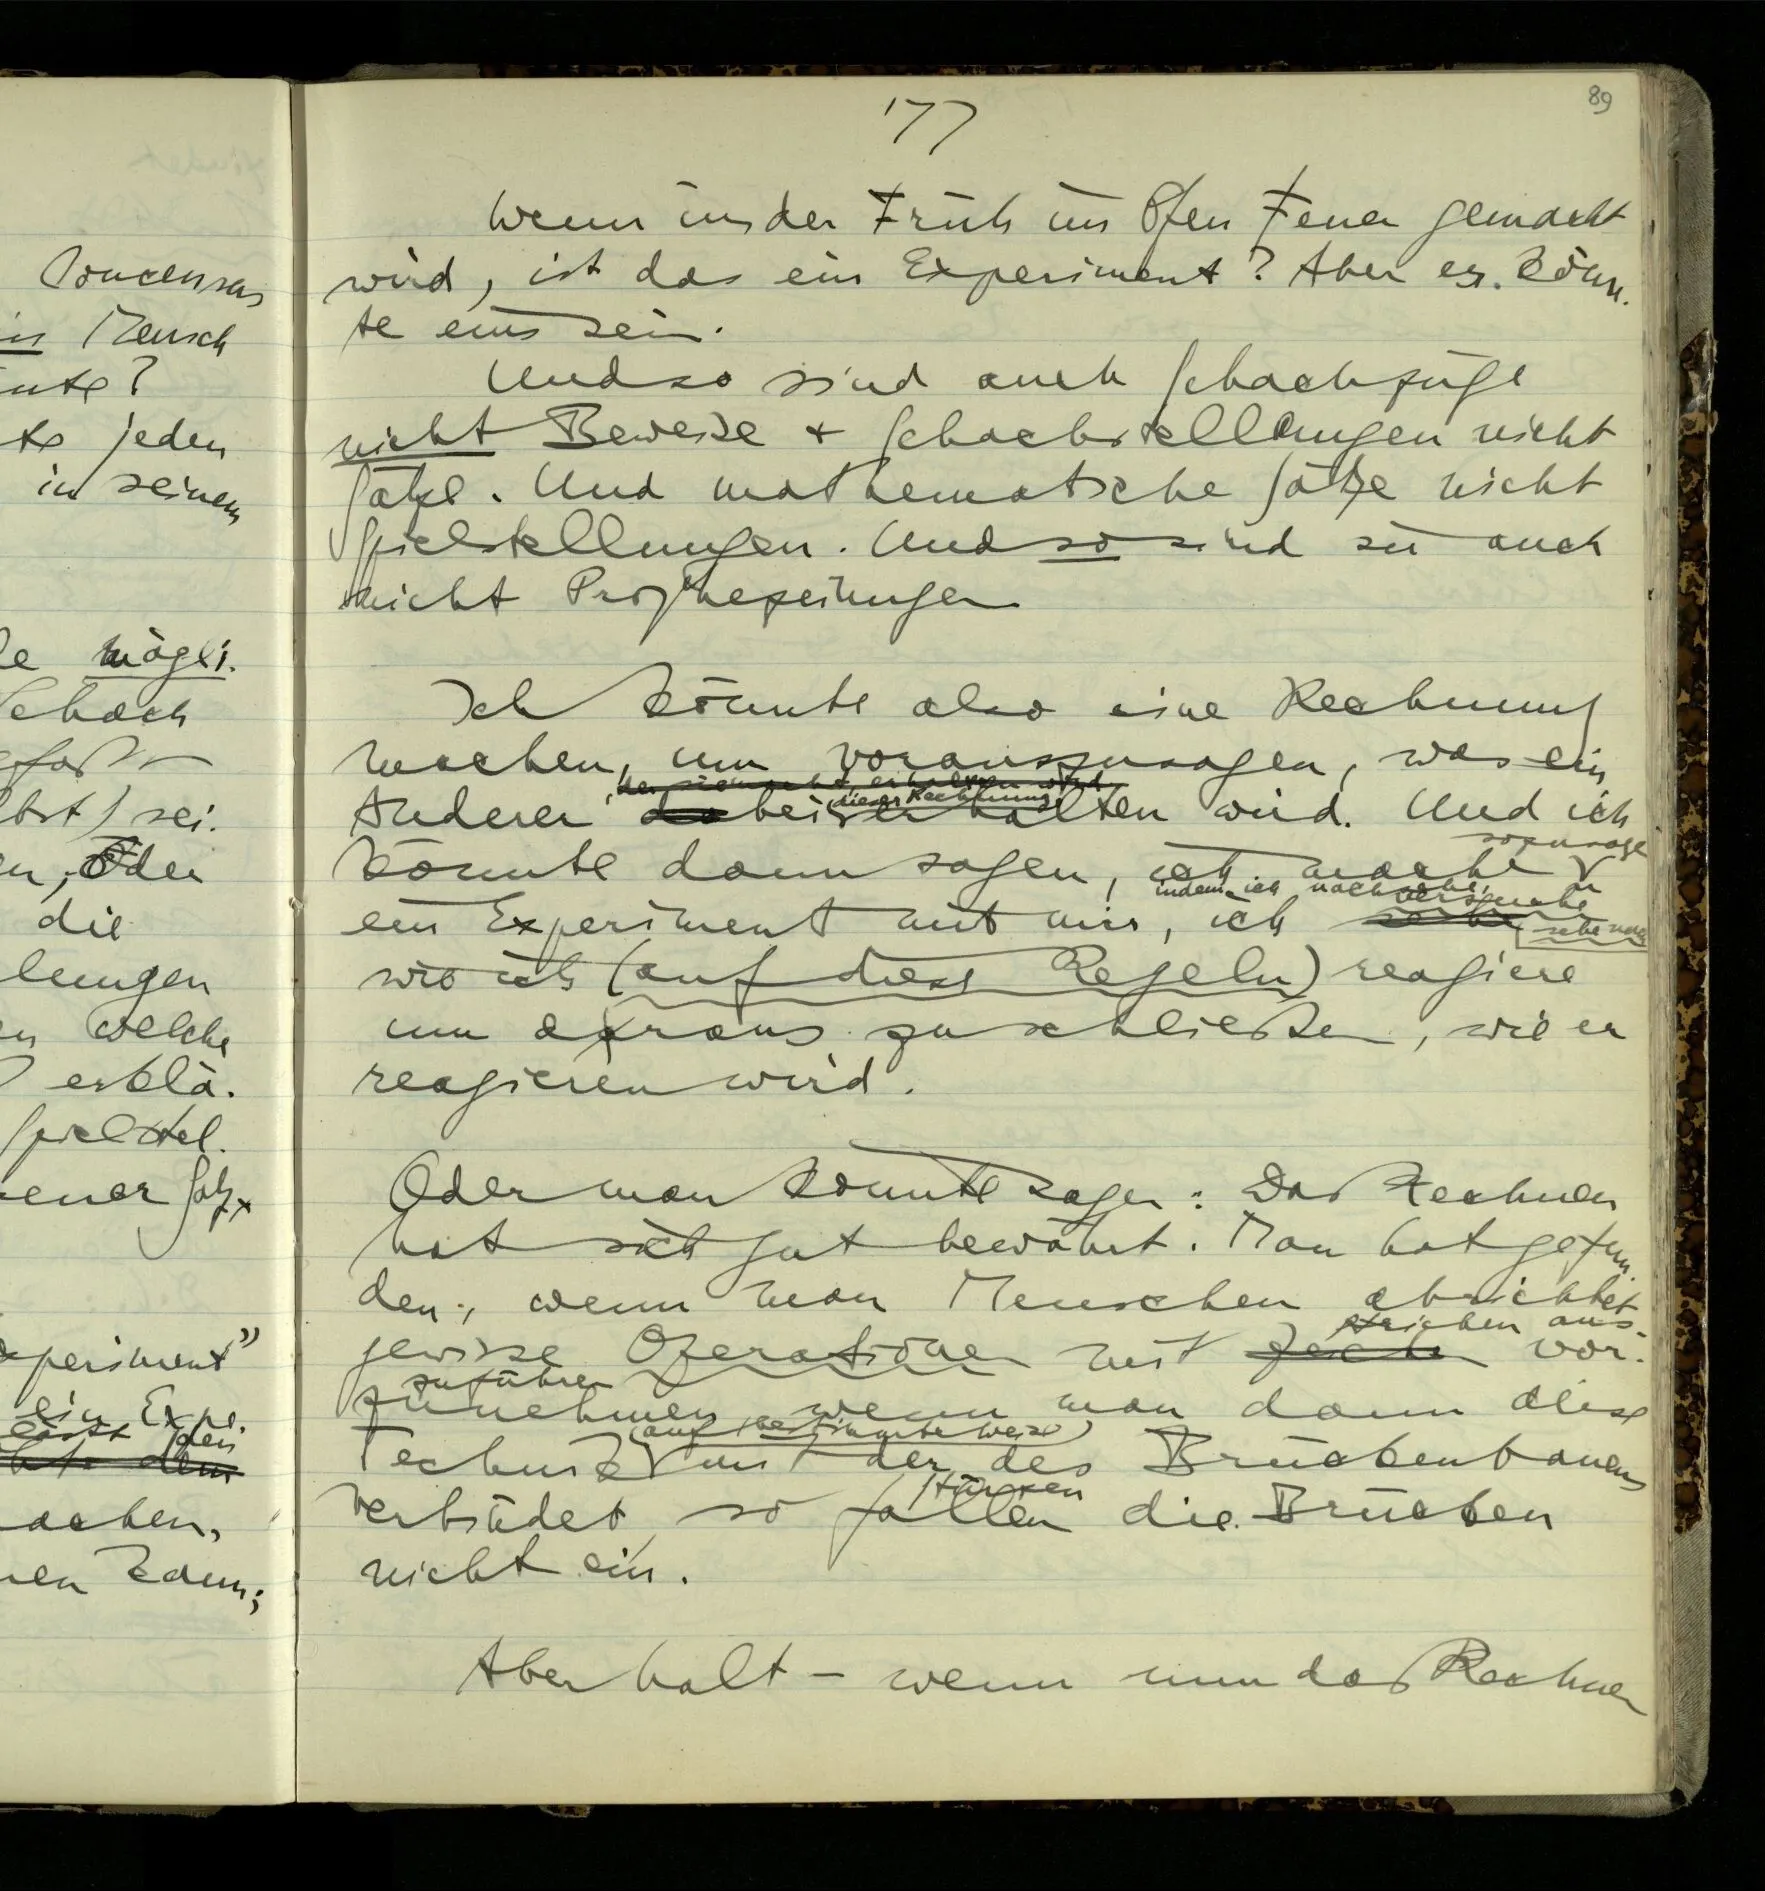 Concensus
in Mensch
jeden
in seinem
mögli.
Schach
sei.
Oder
die
welche
erklä.
Spielstel.
Experiment"
ein Expe.
den
dem
177
89
Wenn in der Früh im Ofen Feuer gemacht
wird, ist das ein Experiment? Aber es könn.
te eins sein.
Und so sind auch Schachzüge
nicht Beweise + Schachstellungen nicht
Sätze. Und mathematische Sätze nicht
Spielstellungen. Und so sind sie auch
nicht Prophezeiungen
Ich könnte also eine Rechnung
machen, um vorauszusagen, was ein
erhalten wird
dieser Rechnung
Anderer dabei erhalten wird. Und ich
sozusage
könnte dann sagen, ich mache
indem ich nachsehe, versuche
ein Experiment mit mir, ich sehe nach
wie ich (auf diese Regeln) reagiere
um daraus zu schließen, wie er
reagieren wird.
Oder man könnte sagen: Das Rechnen
hat sich gut bewährt. Man hat gefun.
den, wenn man Menschen abrichtet
Zeichen aus-
gewisse Operationen mit Zeichen vor.
zuführen
zunehmen wenn man dann diese
(auf bestimmte Weise)
Technik mit der des Brückenbauens
stürzen
verbindet, so fallen die Brücken
nicht ein.
Aber halt – wenn nun das Rechnen